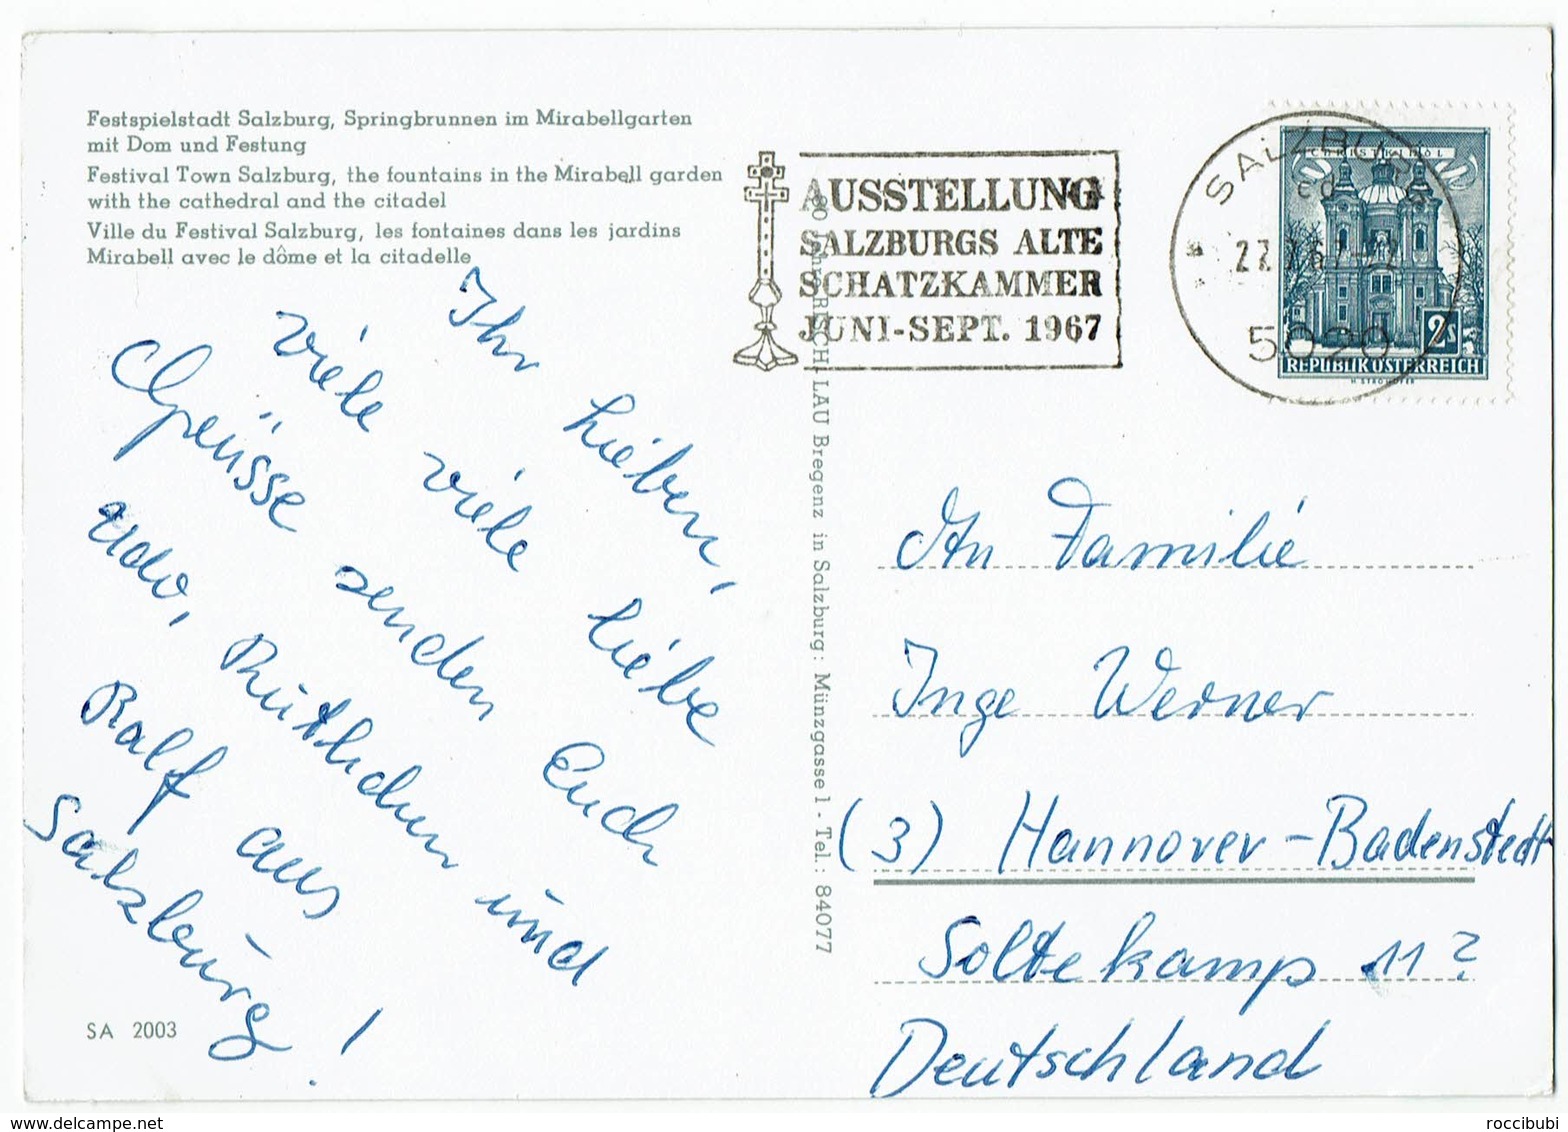 Festspielstadt Salzburg, Springbrunnen im Mirabellgarten
mit Dom und Festung
Festival Town Salzburg, the fountains in the Mirabell garden
with the cathedral and the citadel
Ville du Festival Salzburg, les fontaines dans les jardins
Mirabell avec le dôme et la citadelle
AUSSTELLUNG
SALZBURGS ALTE
SCHATZKAMMER
JUNI-SEPT. 1967
SALZBURG
5020
CHRISTKINDL
2s
REPUBLIK ÖSTERREICH
Ihr Lieben,
viele viele liebe
Grüsse senden Euch
Udo, Ruthchen und
Ralf aus
Salzburg!
LAU Bregenz in Salzburg: Münzgasse 1 - Tel.: 84077
An Familie
Inge Werner
(3) Hannover-Badenstedt
Soltekamp 11?
Deutschland
SA 2003
www.delcampe.net
roccibubi